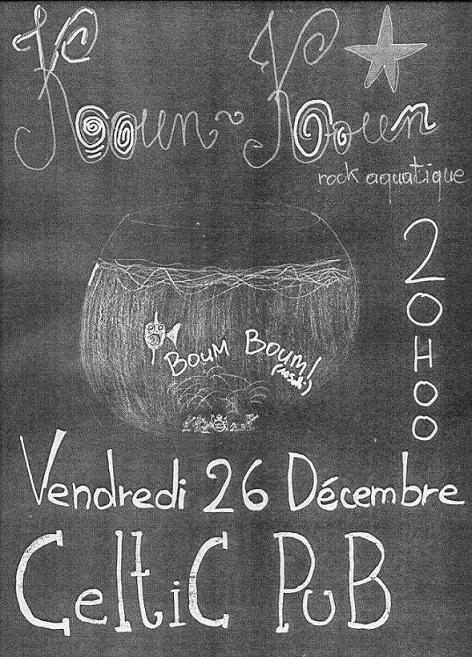 Koun~Koun
rock aquatique
20H00
Boum Boum!
Vendredi 26 Décembre
Celtic PuB